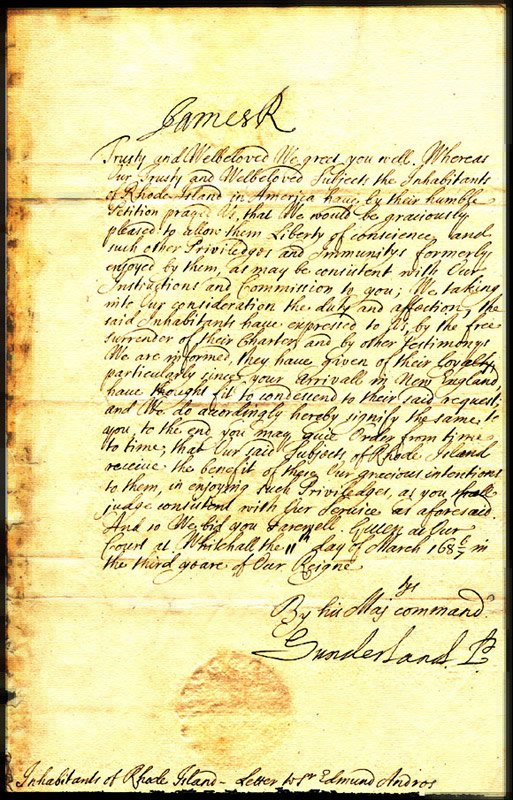 James R
Trusty and Welbeloved We greet you well. Whereas
Our Trusty and Welbeloved Subjects the Inhabitants
of Rhode Island in America have by their humble
Petition prayed Us, that We would be graciously
pleased to allow them Liberty of conscience and
such other Priviledges and Immunitys formerly
enjoyed by them, as may be consistent with Our
Instructions and Commission to you; We taking
into Our consideration the duty and affection, the
said Inhabitants have expressed to Us, by the free
surrender of their Charter, and by other Testimonys
We are informed, they have given of their loyalty
particularly since your arrivall in New England
have thought fit to condescend to their said request,
and We do accordingly hereby signify the same to
you, to the end you may give Order from time
to time, that Our said Subjects of Rhode Island
receive the benefit of these Our gracious intentions
to them, in enjoying such Priviledges, as you shall
judge consistent with Our Service as aforesaid.
And so We bid you Farewell. Given at Our
Court at Whitehall the 11th day of March 168 6/7 in
the third yeare of Our Reigne
By his Maj tys command.
Sunderland P
Inhabitants of Rhode Island - Letter to Sr Edmund Andros